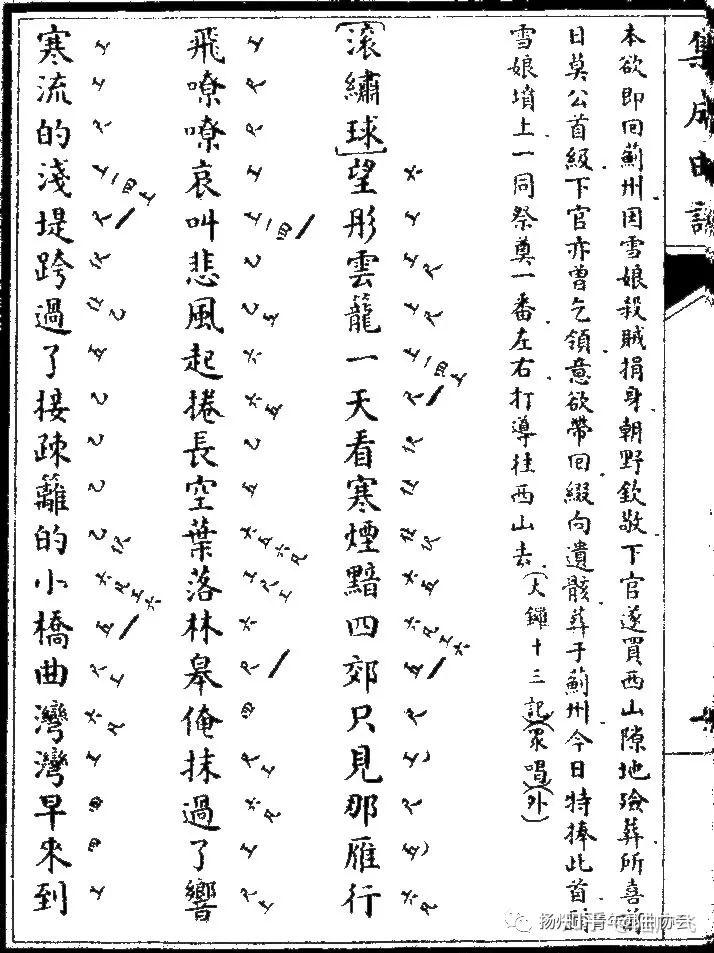 集成曲譜
本欲即回薊州因雪娘殺賊捐身朝野欽敬下官遂買西山隙地殮葬所喜前
日莫公首級下官亦曾乞領意欲帶回綴向遺骸葬于薊州今日特捧此首到
雪娘墳上一同祭奠一番左右打導往西山去(大鑼十三記)(眾唱)(外)
[滾繡球]望彤雲籠一天看寒煙黯四郊只見那雁行
飛嘹嘹哀叫悲風起捲長空葉落林皋俺抹過了響
寒流的淺堤跨過了接疎籬的小橋曲灣灣早來到
扬州市青年昆曲协会